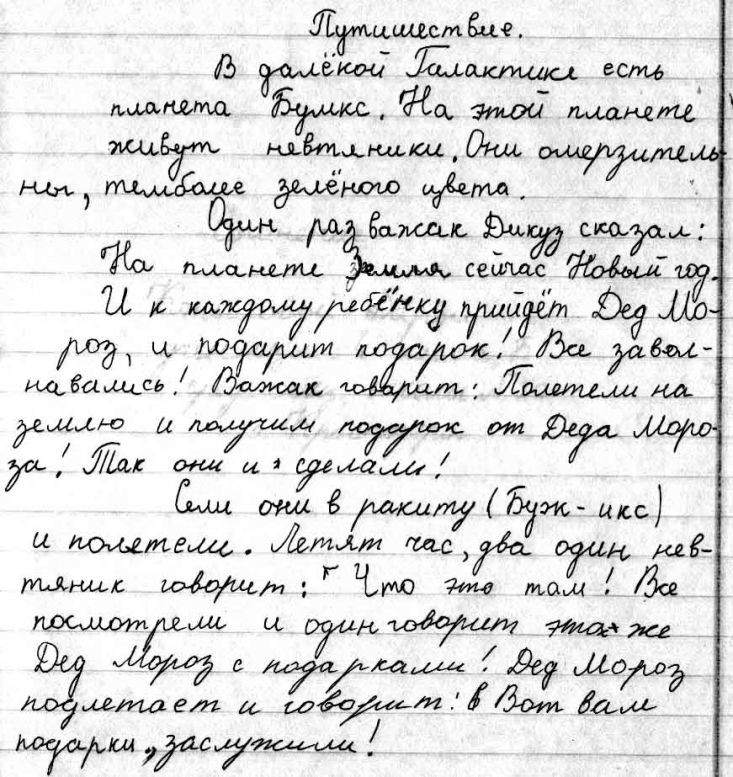 Путишествие.
В далёкой Галактике есть
планета Бумкс. На этой планете
живут невтяники. Они омерзитель-
ны, темболее зелёного цвета.
Один раз важак Дикуз сказал:
На планете Земля сейчас Новый год.
И к каждому ребёнку прийдёт Дед Мо-
роз, и подарит подарок! Все завол-
навались! Важак говарит: Полетели на
землю и получим подарок от Деда Моро-
за! Так они и сделали!
Сели они в ракиту (Буж-икс)
и полетели. Летят час, два один нев-
тяник говорит: Что это там! Все
посмотрели и один говорит это же
Дед Мороз с подарками! Дед Мороз
подлетает и говорит: в Вот вам
подарки, заслужили!